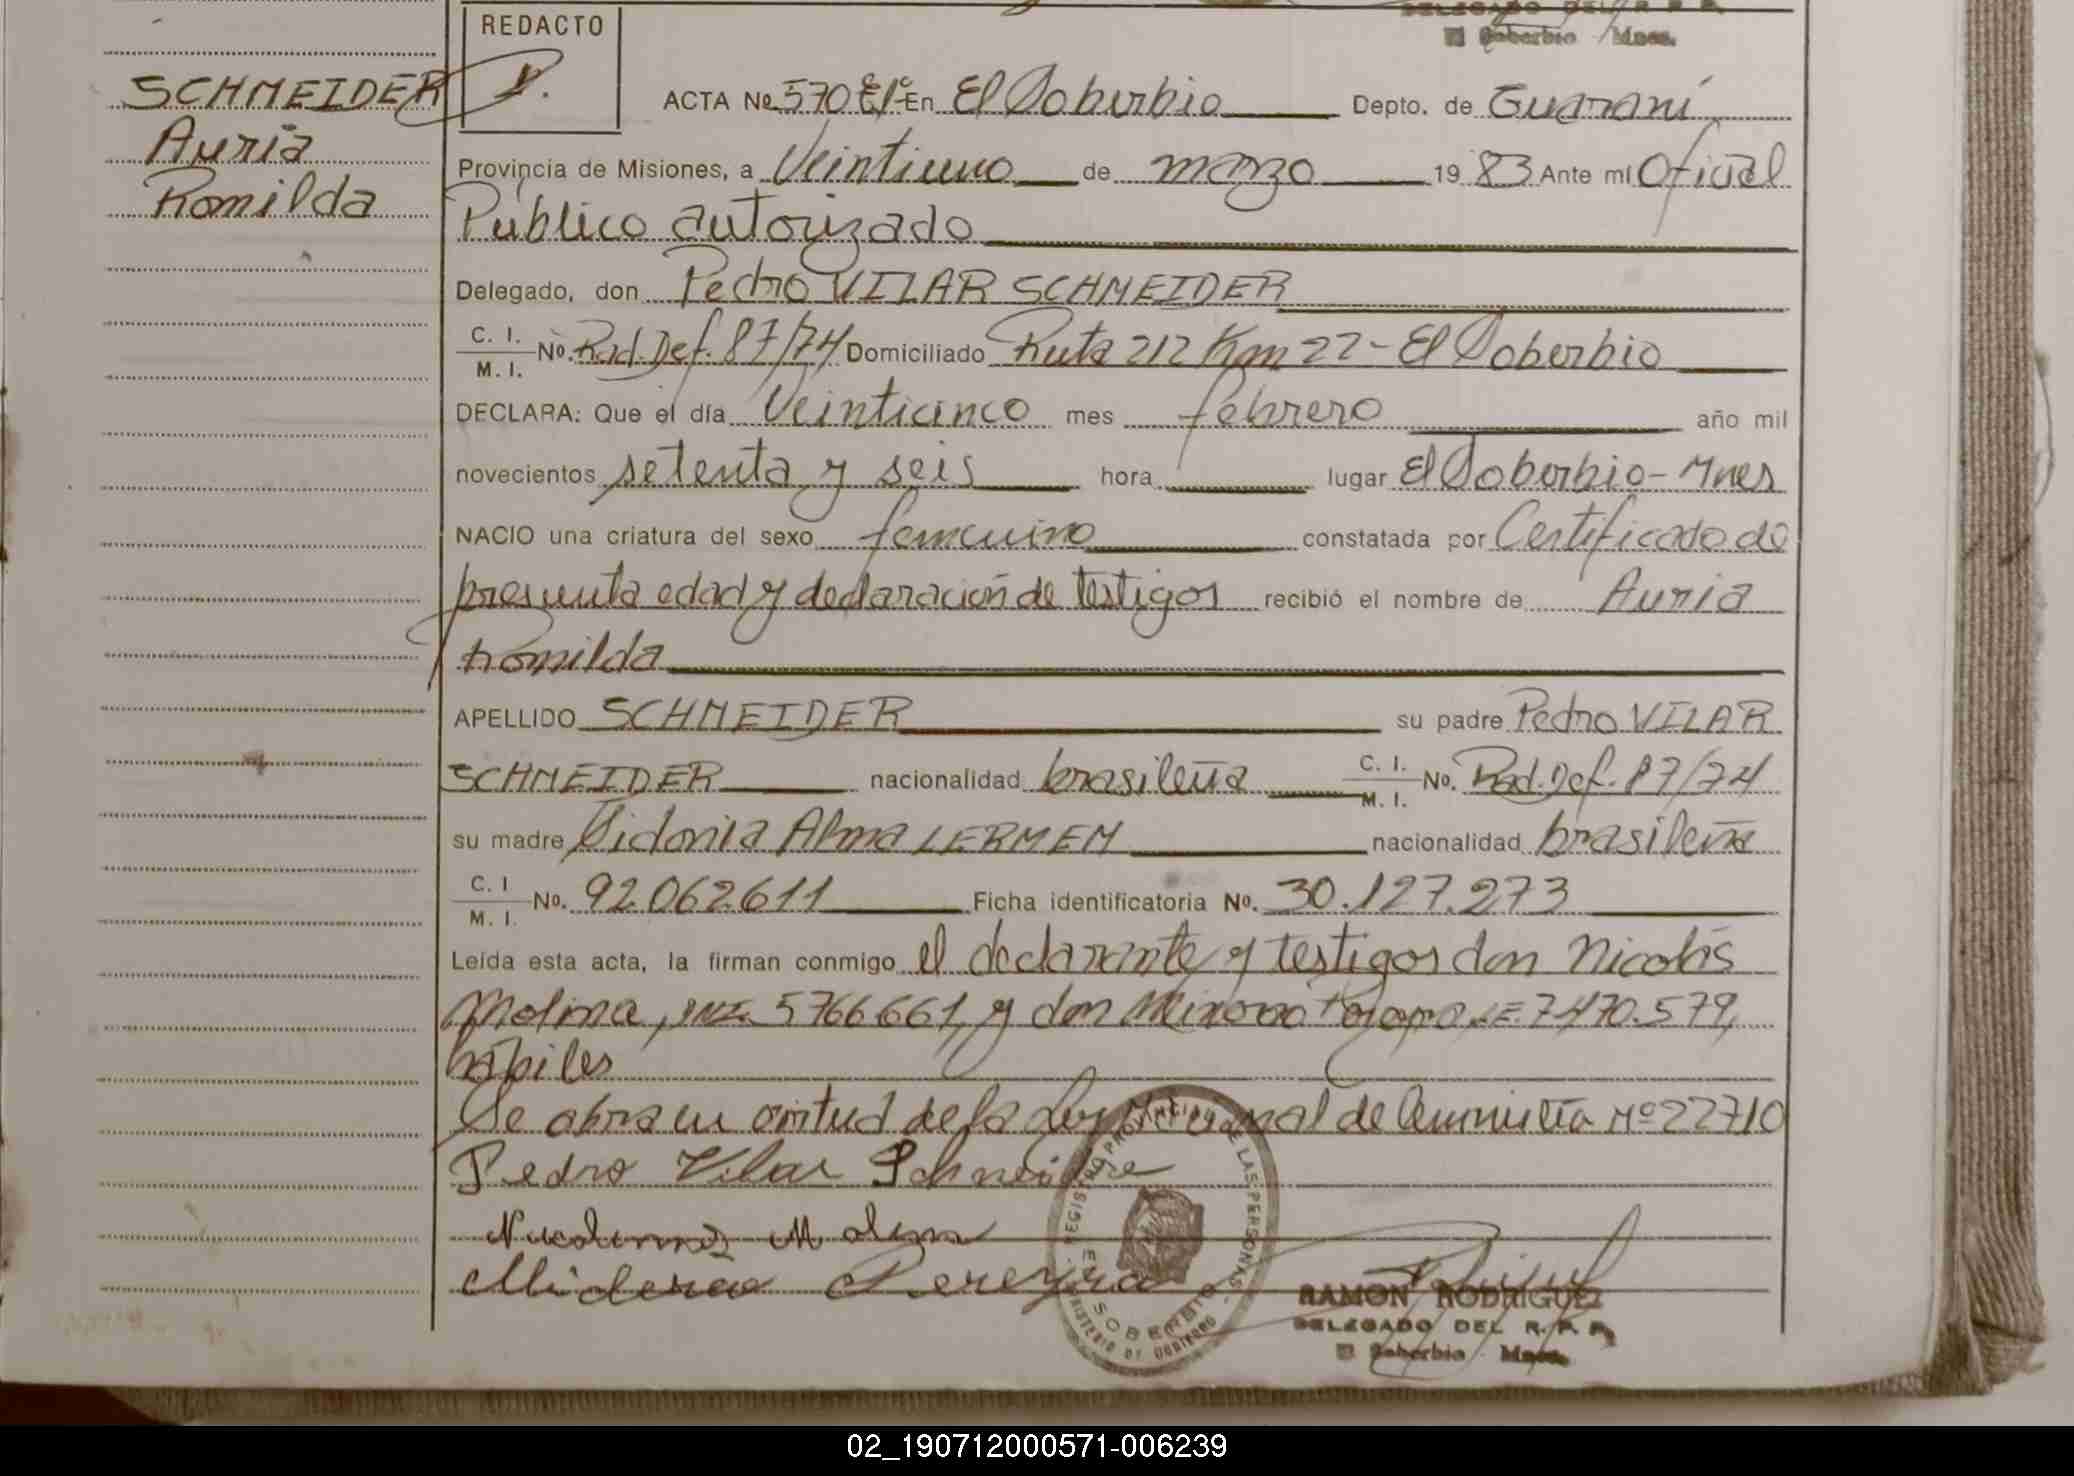 DELEGADO DEL R. P. P.
El Soberbio Mnes.
REDACTO
SCHNEIDER
Auria
Romilda
ACTA No. 570 En El Soberbio Depto. de Guaraní
Provincia de Misiones, a Veintiuno de marzo 1983 Ante mí Oficial
Público autorizado
Delegado, don Pedro VILAR SCHNEIDER
C. I.
M. I. No. Rad. Def. 87/74 Domiciliado Ruta 212 Km 22 - El Soberbio
DECLARA: Que el día Veinticinco mes febrero año mil
novecientos setenta y seis hora lugar El Soberbio - Mnes
NACIO una criatura del sexo femenino constatada por Certificado de
presunta edad y declaración de testigos recibió el nombre de Auria
Romilda
APELLIDO SCHNEIDER su padre Pedro VILAR
SCHNEIDER nacionalidad brasileña C. I. M. I. No. Rad. Def. 87/74
su madre Sidonia Alma LERMEN nacionalidad brasileña
C. I M. I. No. 92.062.611 Ficha identificatoria No. 30.127.273
Leída esta acta, la firman conmigo el declarante y testigos don Nicolás
Molina, 5766661, y don 7.470.579,
hábiles
Se abra en virtud de la Ley Nacional de Amnistía Nº 22710
Pedro Vilar Schneider
Molina
Pereyra
REGISTRO PROVINCIAL DE LAS PERSONAS
SOBERBIO
MINISTERIO DE GOBIERNO
RAMON RODRIGUEZ
DELEGADO DEL R. P. P.
El Soberbio Mnes.
02_190712000571-006239